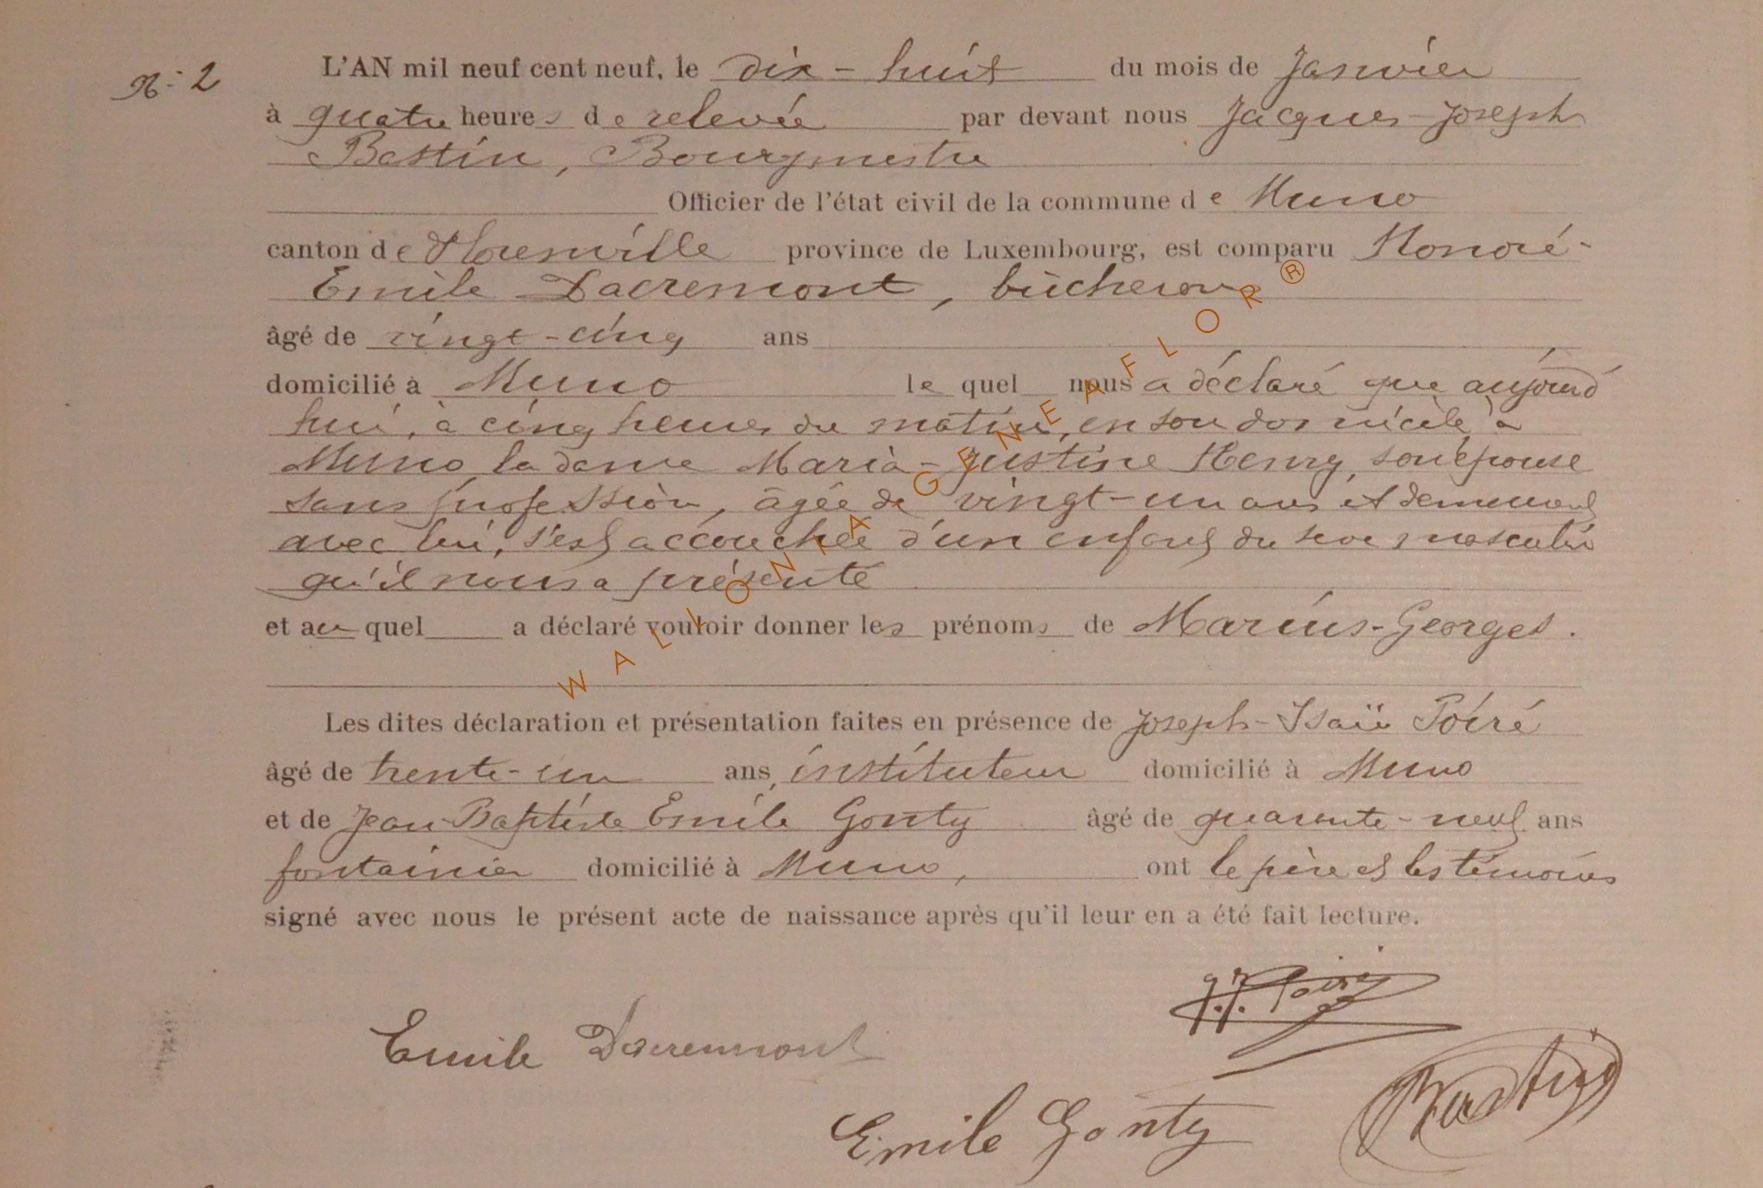 N° 2
L'AN mil neuf cent neuf, le dix-huit du mois de Janvier
à quatre heures de relevée par devant nous Jacques-Joseph
Bastin, Bourgmestre
Officier de l'état civil de la commune de Muno
canton de Florenville province de Luxembourg, est comparu Honoré-
Emile Dacremont, bûcheron
âgé de vingt-cinq ans
domicilié à Muno le quel nous a déclaré que aujourd
hui, à cinq heures du matin, en son domicile à
Muno, la dame Maria-Justine Henry, son épouse
sans profession, âgée de vingt-un ans et demeurant
avec lui, s'est accouchée d'un enfant du sexe masculin
qu'il nous a présenté
et au quel a déclaré vouloir donner les prénoms de Marius-Georges.
Les dites déclaration et présentation faites en présence de Joseph-Isaïe Poiré
âgé de trente-un ans, instituteur domicilié à Muno
et de Jean-Baptiste Emile Gonty âgé de quarante-neuf ans
fontainier domicilié à Muno, ont le père et les témoins
signé avec nous le présent acte de naissance après qu'il leur en a été fait lecture.
J.J. Poiré
Emile Dacremont
Bastin
Emile Gonty
WALLONIA GENEAFLOR®